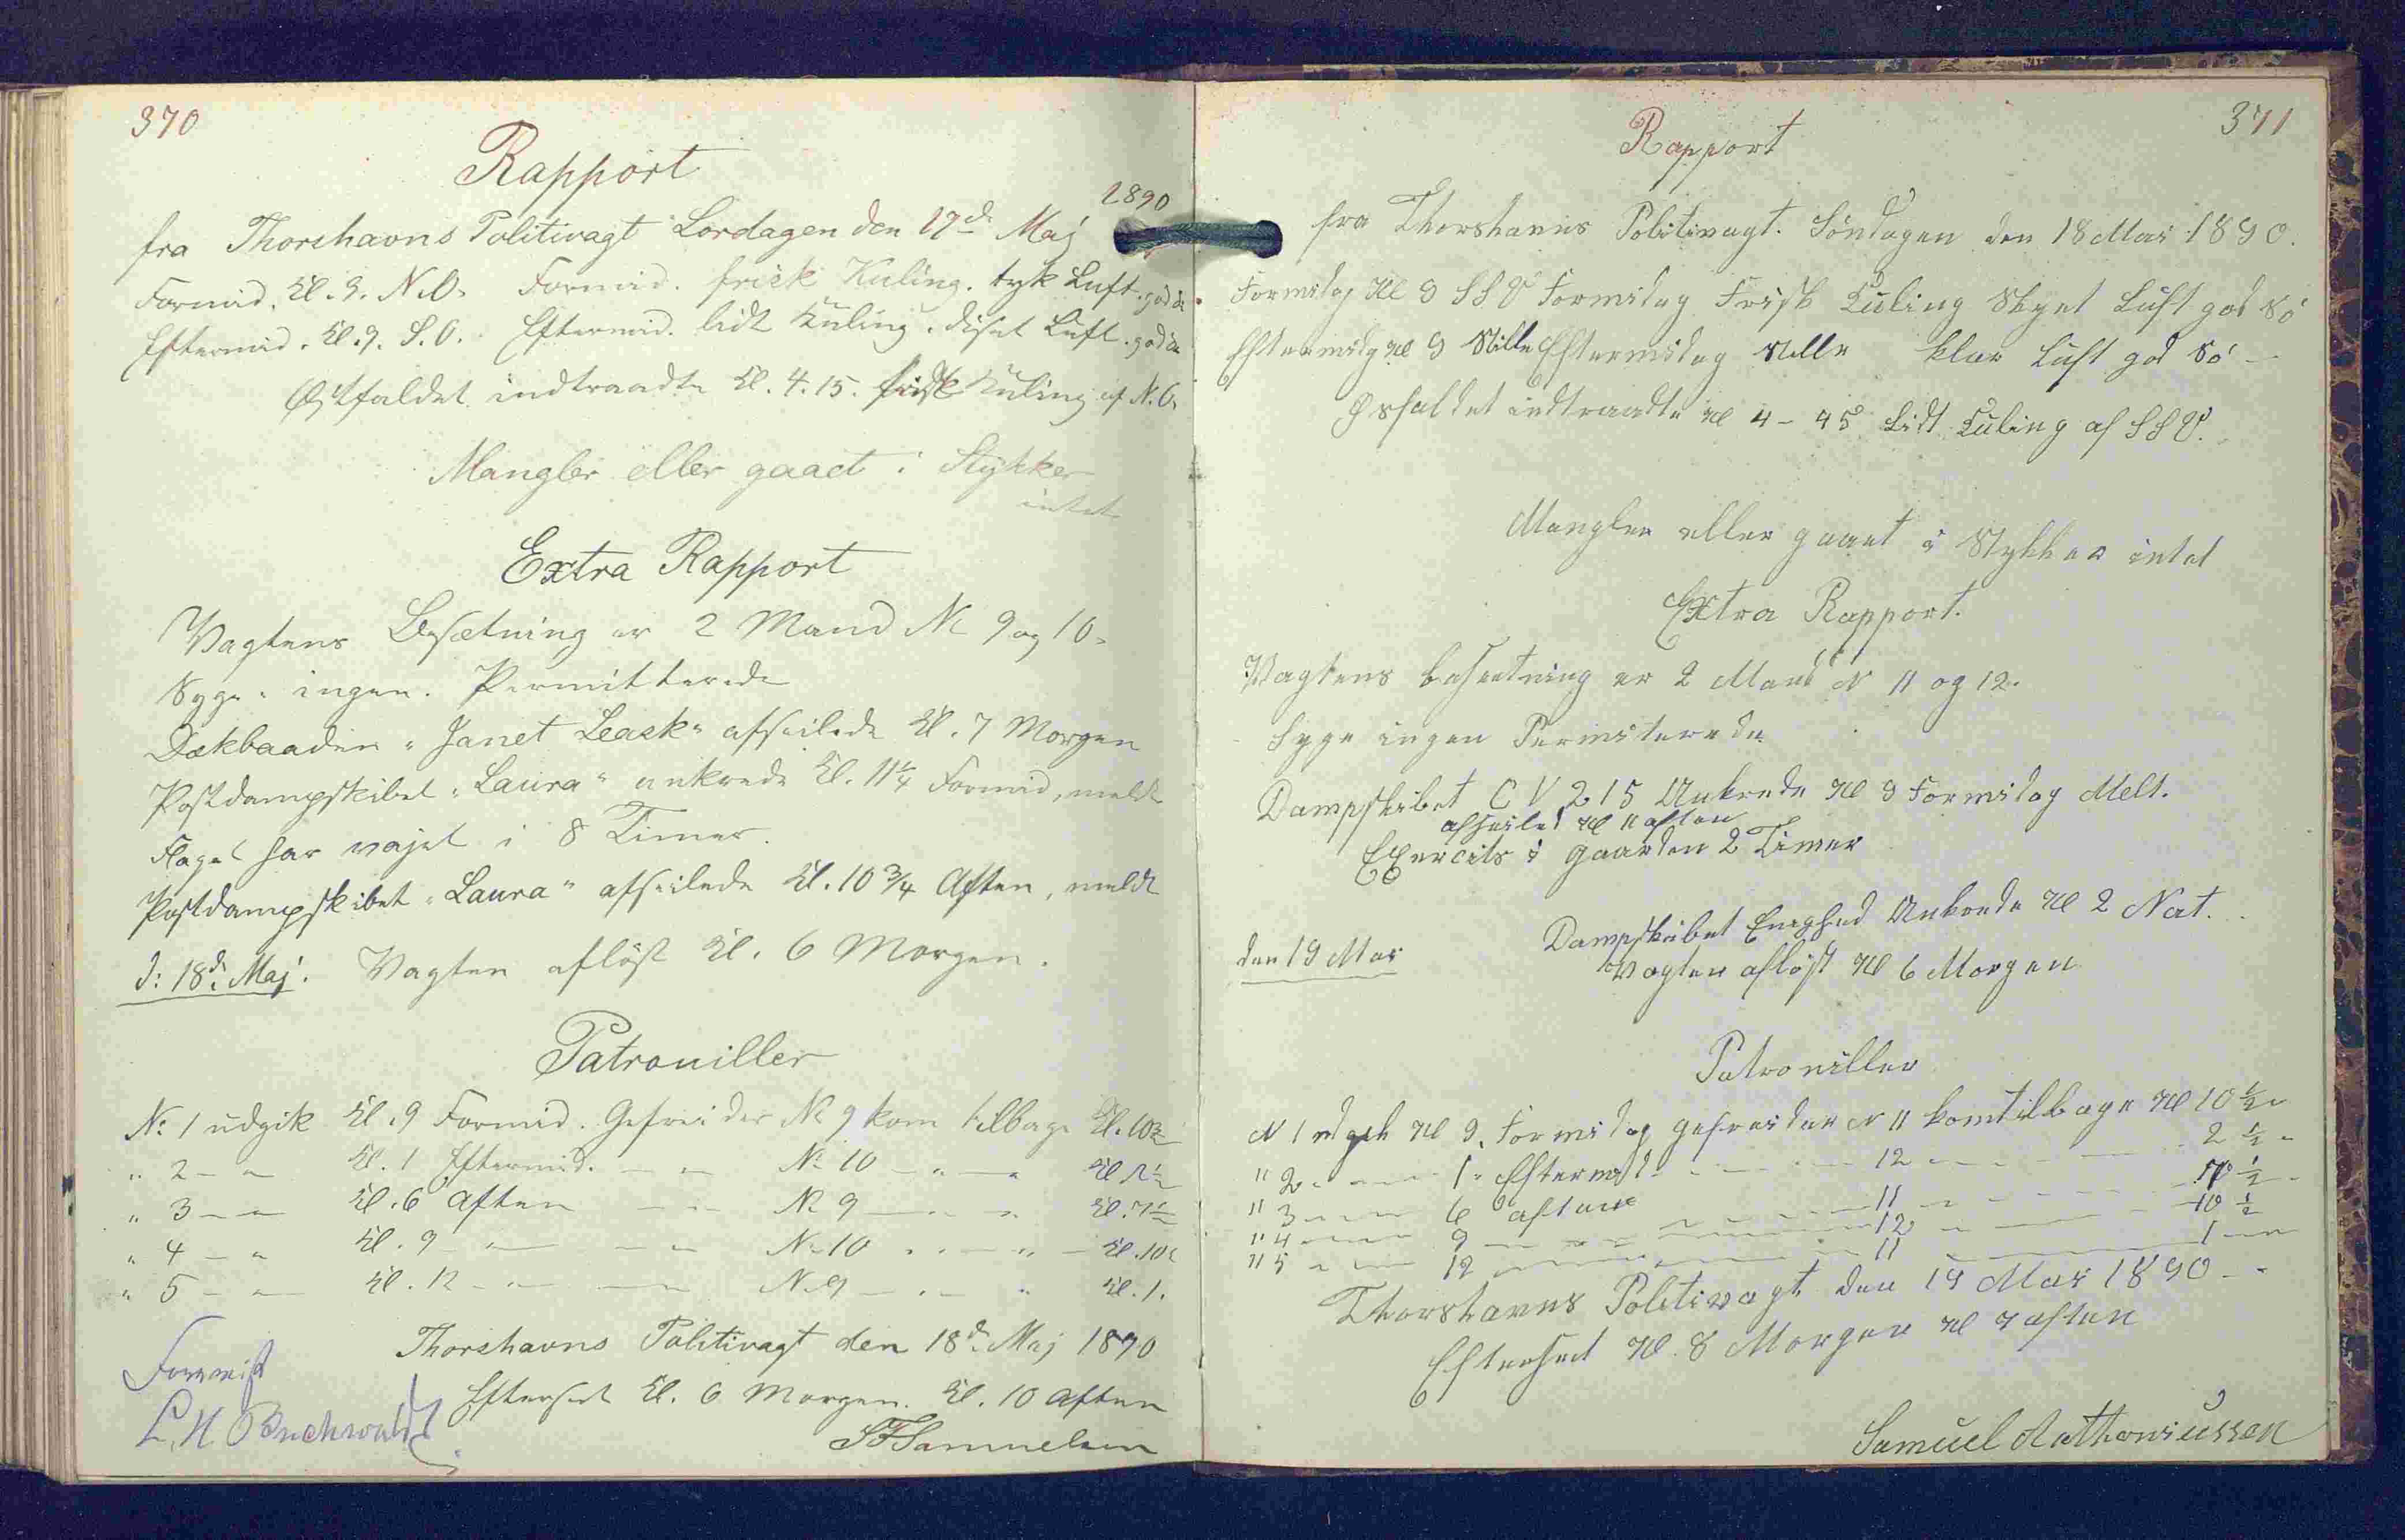 370
Rapport
1890
fra Thorshavns Politivagt Lørdagen den 17d. Maj
Formid. Kl. 9. N.O. Formid. frisk Kuling. tyk Luft. god Sø
Eftermid. Kl. 9. S.O. Eftermid. lidt Kuling. diset Luft. god Sø
Østfaldet indtraadte Kl. 4.15. frisk Kuling af N.O.
Mangler eller gaaet i Stykker
intet
Extra Rapport
Vagtens Besætning er 2 Mand No 9 og 10.
Syge. ingen. Permitterede
Dækbaaden "Janet Leask" afseilede Kl. 7 Morgen
Postdampskibet "Laura" ankrede Kl. 11¼ Formid, meldt
Flaget har vajet i 8 Timer.
Postdampskibet "Laura" afseilede Kl. 10¾ Aften, meldt
d: 18d. Maj. Vagten afløst Kl. 6 Morgen.
Patrouiller
No 1 udgik Kl. 9 Formid. Gefreider No 9 kom tilbage Kl. 10½
" 2 — " Kl. 1 Eftermid. — " No 10 — " — " Kl. 2½
" 3 — " Kl. 6 Aften — " No 9 — " — " Kl. 7½
" 4 — " Kl. 9 — " — — " No 10 " " — " — Kl. 10½
" 5 — " Kl. 12 — " — — " No 9 — " — " Kl. 1.
Thorshavns Politivagt den 18d. Maj 1890
Eftersat Kl. 6 Morgen. Kl. 10 Aften
SFSamuelsen
Forevist
L. H. Buchwaldt
371
Rapport
fra Thorshavns Politivagt. Söndagen den 18 Mai 1890.
Formidag Kl 9 SSV Formidag Frisk Kuling Skyet Luft god Sö
Eftermidg Kl 9 Stille Eftermidag Stille klar Luft god Sö —
Østfaldet indtraadte Kl 4-45 Lidt Kuling af SSV.
Mangler eller gaaet i Stykker intet
Extra Rapport.
Vagtens besætning er 2 Mand N 11 og 12.
Syge ingen Permiterede
Dampskibet C V 215 Ankrede Kl 9 Formidag Melt.
afseiled Kl 11 aften
Exercits i gaarden 2 Timer
Dampskibet Enighed Ankrede Kl 2 Nat.
den 19 Mai Vagten afløst Kl 6 Morgen
Patrouiller
N 1 udgik Kl 9. Formidag gefreider N 11 kom tilbage Kl 10½ "
" 2 " — — 1 " Eftermid — — — 12 — — — 2½ "
" 3 — — 6 aften — — — 11 — — — 7½ "
" 4 — — 9 — — — 12 — — — 10½
" 5 — — 12 — — — 11 — — — 1 —
Thorshavns Politivagt den 19 Mai 1890 —
Eftersat Kl. 8 Morgen Kl 7 aften
Samuel Anthoniussen